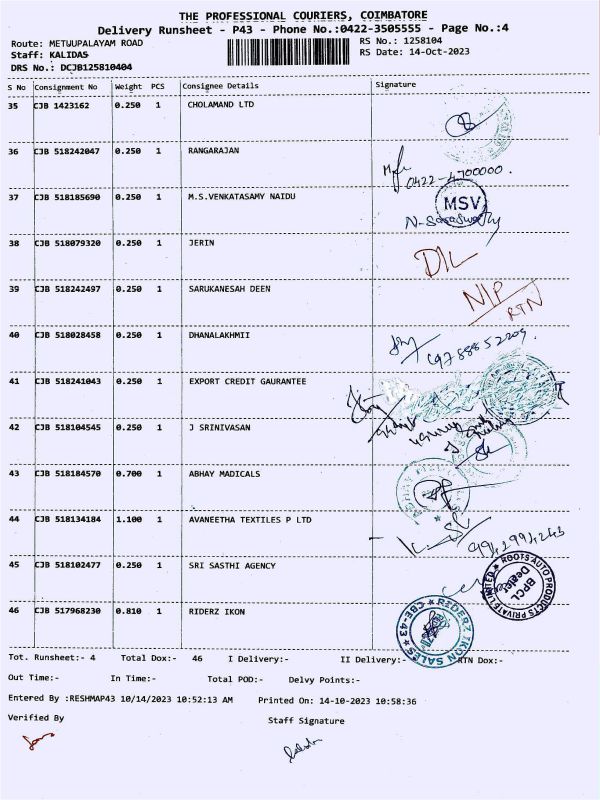 THE PROFESSIONAL COURIERS, COIMBATORE
Delivery Runsheet - P43 - Phone No.:0422-3505555 - Page No.:4
Route: METUUPALAYAM ROAD RS No.: 1258104
Staff: KALIDAS RS Date: 14-Oct-2023
DRS No.: DCJB125810404
S No Consignment No Weight PCS Consignee Details Signature
35 CJB 1423162 0.250 1 CHOLAMAND LTD
36 CJB 518242047 0.250 1 RANGARAJAN
0422-4700000.
37 CJB 518185690 0.250 1 M.S.VENKATASAMY NAIDU MSV
N-Saraswathy
38 CJB 518079320 0.250 1 JERIN D/L
39 CJB 518242497 0.250 1 SARUKANESAH DEEN N/P
RTN
40 CJB 518028458 0.250 1 DHANALAKHMII
9788852209.
41 CJB 518241043 0.250 1 EXPORT CREDIT GAURANTEE
42 CJB 518104545 0.250 1 J SRINIVASAN
43 CJB 518184570 0.700 1 ABHAY MADICALS
44 CJB 518134184 1.100 1 AVANEETHA TEXTILES P LTD
9942994243
45 CJB 518102477 0.250 1 SRI SASTHI AGENCY
ROOTS AUTO PRODUCTS PRIVATE LIMITED
BPCL
Dealer
46 CJB 517968230 0.810 1 RIDERZ IKON
RIDERZ IKON SALES CBE-43
Tot. Runsheet:- 4 Total Dox:- 46 I Delivery:- II Delivery:- RTN Dox:-
Out Time:- In Time:- Total POD:- Delvy Points:-
Entered By :RESHMAP43 10/14/2023 10:52:13 AM Printed On: 14-10-2023 10:58:36
Verified By Staff Signature